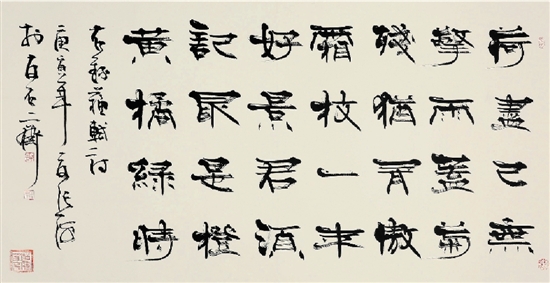 荷盡已無
擎雨蓋菊
殘猶有傲
霜枝一年
好景君須
記最是橙
黃橘綠時
右錄蘇軾詩
庚寅年張海
於石齋